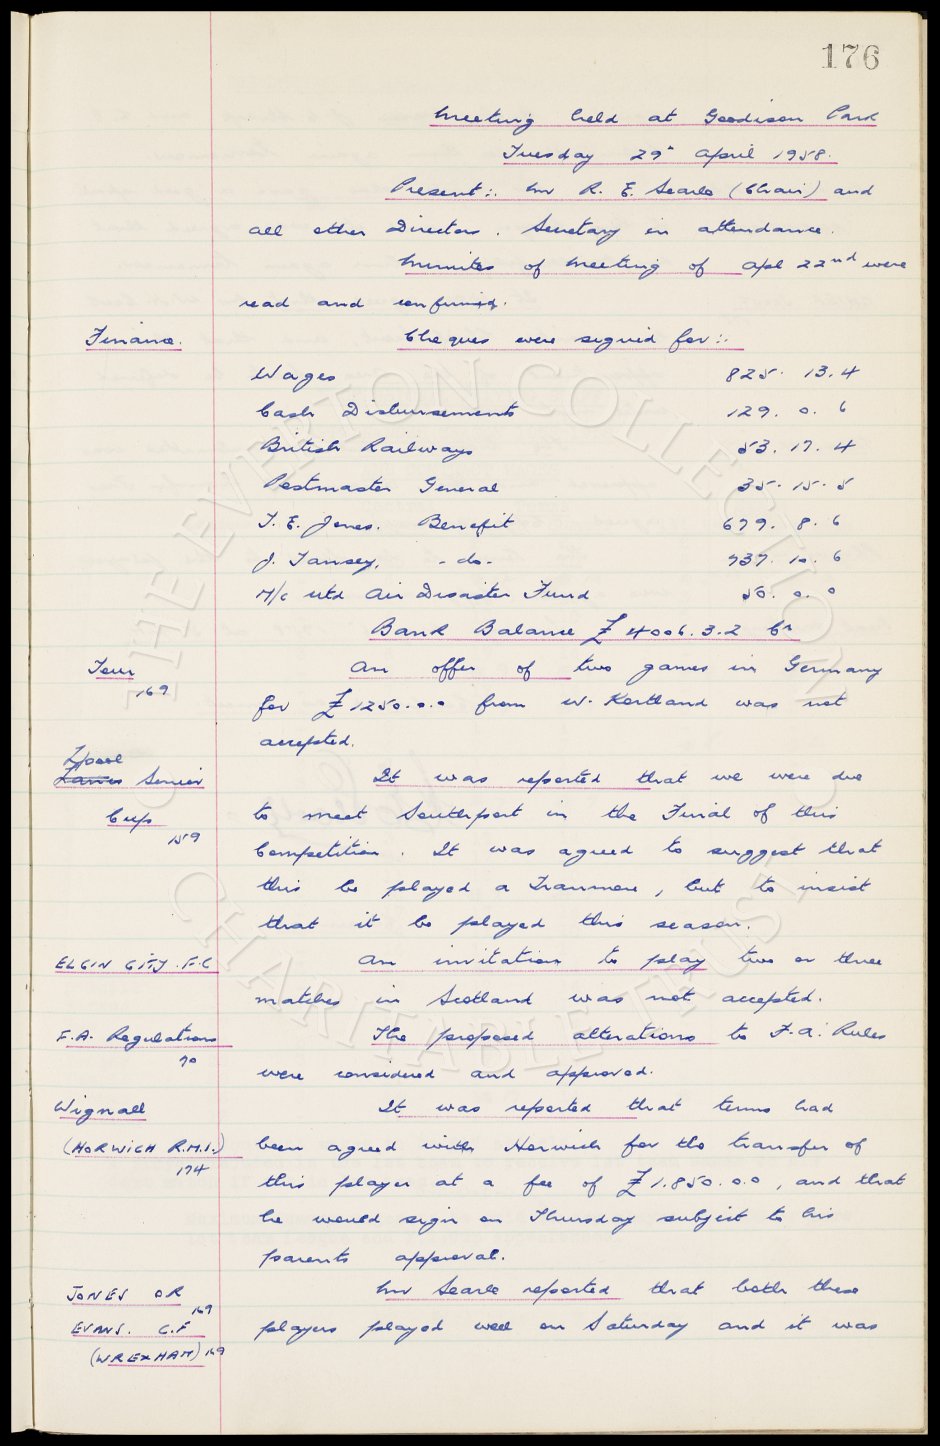 176
Meeting held at Goodison Park
Tuesday 29th April 1958.
Present:. Mr R. E. Searle (Chair) and
all other Directors. Secretary in attendance.
Minutes of Meeting of Apl 22nd were
read and confirmed.
Finance. Cheques were signed for:.
Wages 825. 13. 4
Cash Disbursements 129. 0. 6
British Railways 53. 17. 4
Postmaster General 35. 15. 5
T. E. Jones. Benefit 679. 8. 6
J. Tansey. - do - 737. 10. 6
M/c Utd Air Disaster Fund 50. 0. 0
Bank Balance £4006.3.2 Cr
Tour An offer of two games in Germany
169
for £1250.0.0 from W. Kortland was not
accepted.
L'pool
Lancs Senior It was reported that we were due
Cup to meet Southport in the Final of this
159
Competition. It was agreed to suggest that
this be played a Tranmere, but to insist
that it be played this season.
ELGIN CITY. F.C An invitation to play two or three
matches in Scotland was not accepted.
F.A. Regulations The proposed alterations to F.A. Rules
70
were considered and approved.
Wignall It was reported that terms had
(HORWICH R.M.I.) been agreed with Horwich for the transfer of
174
this player at a fee of £1.850.0.0, and that
he would sign on Thursday subject to his
parents approval.
JONES OR Mr Searle reported that both these
169
EVANS. C.F players played well on Saturday and it was
(WREXHAM) 169
THE EVERTON COLLECTION
CHARITABLE TRUST